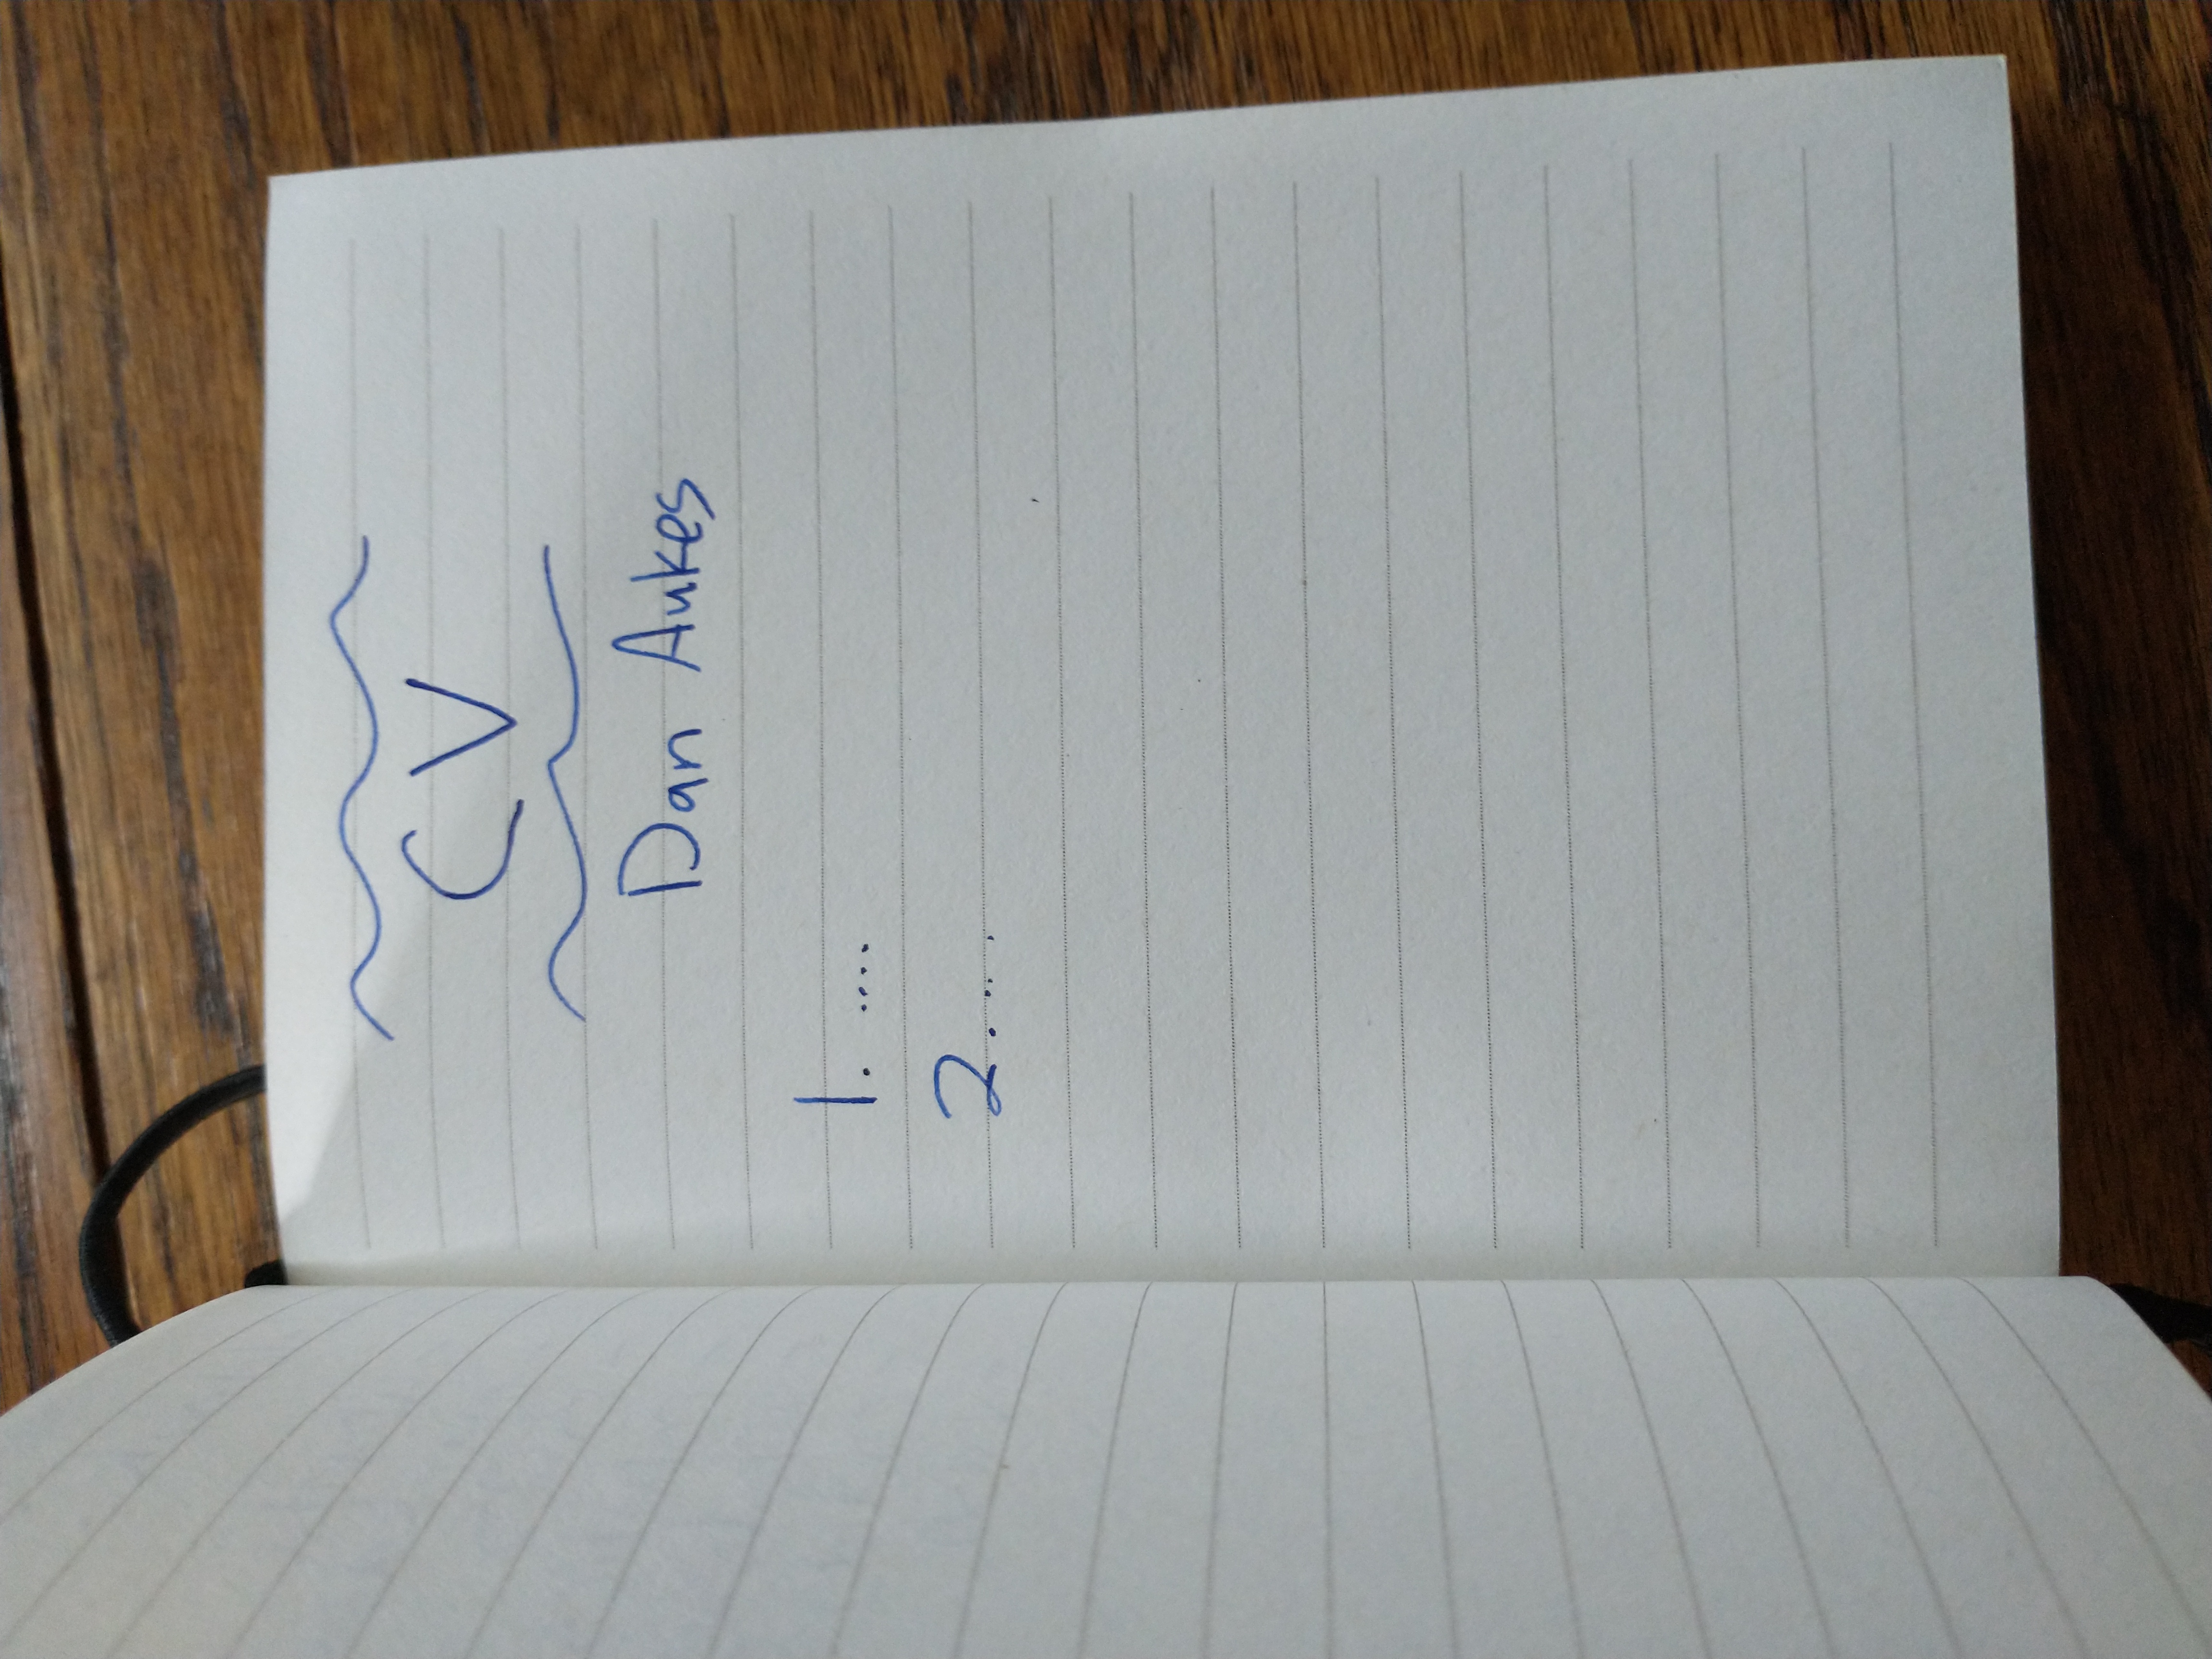 CV
Dan Aukes
1. ....
2. ....